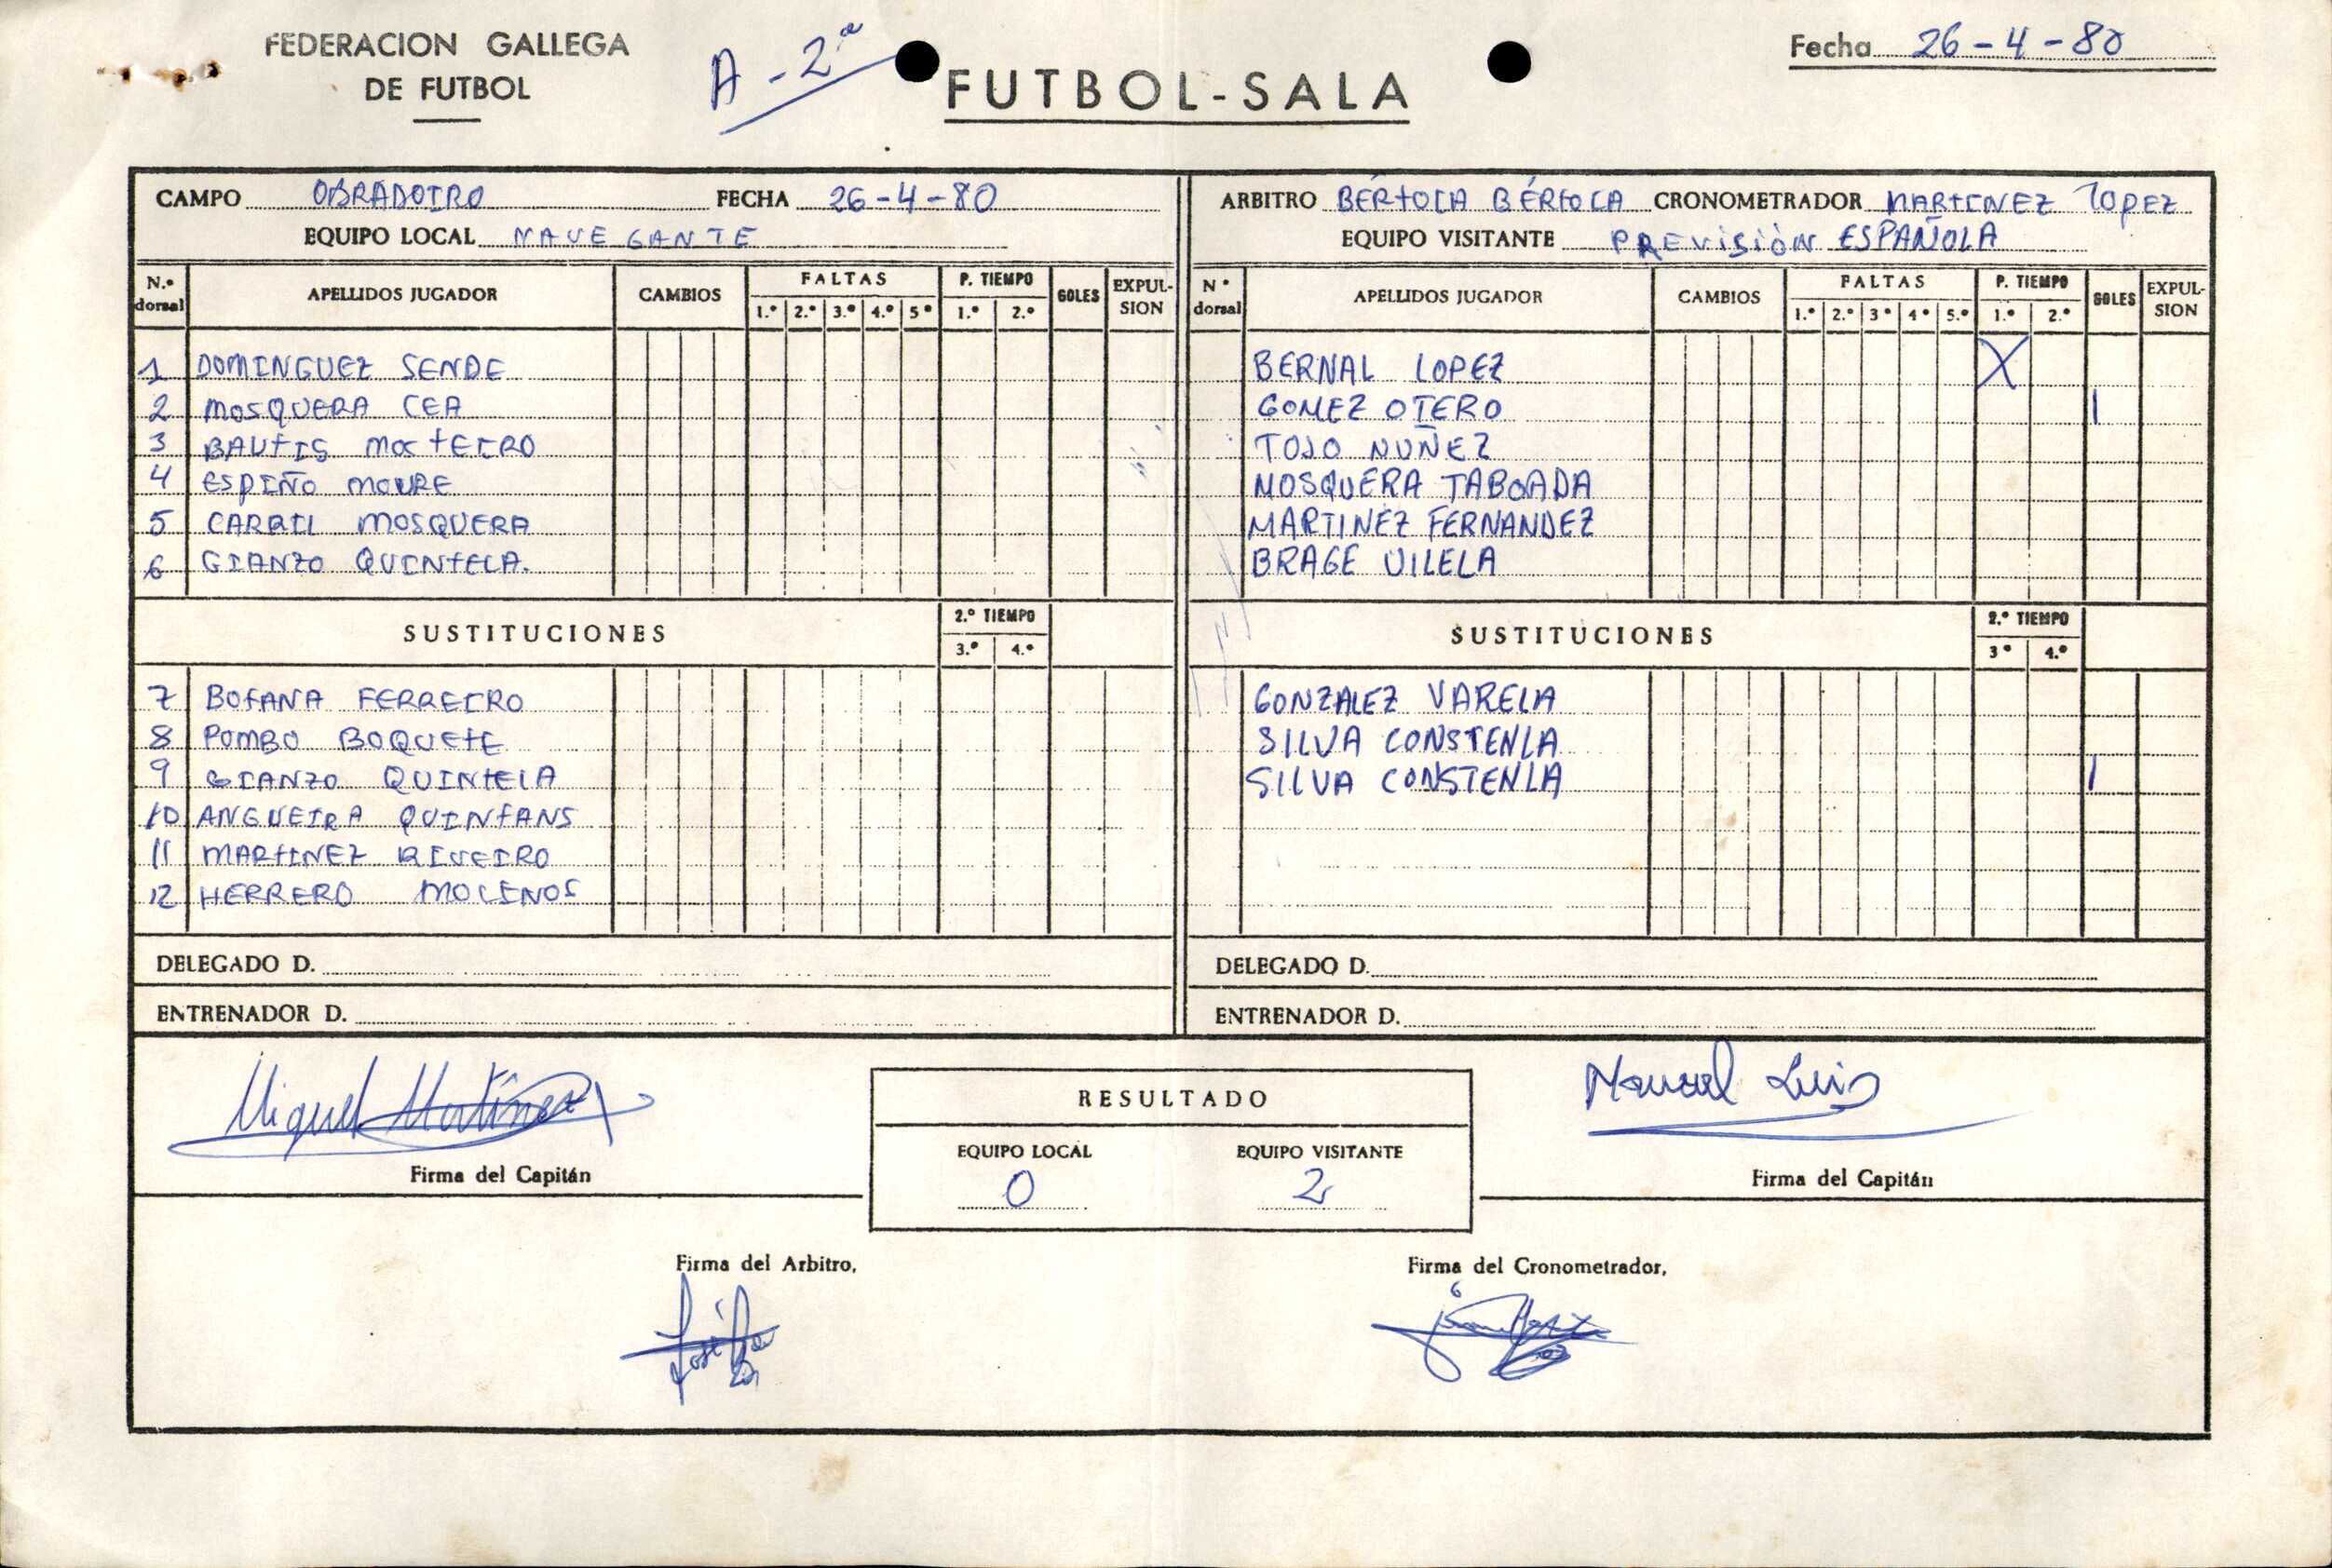 FEDERACION GALLEGA
DE FUTBOL
A-2ª
FUTBOL-SALA
Fecha 26-4-80
CAMPO OBRADOIRO FECHA 26-4-80
EQUIPO LOCAL NAVEGANTE
N.º dorsal APELLIDOS JUGADOR CAMBIOS FALTAS P. TIEMPO GOLES EXPULSION
1.º 2.º 3.º 4.º 5º 1.º 2.º
1 DOMINGUEZ SENDE
2 MOSQUERA CEA
3 BAUTIS
4 ESPIÑO MOURE
5 CARRIL MOSQUERA
6 GIANZO QUINTELA.
SUSTITUCIONES 2.º TIEMPO
3.º 4.º
7 BOTANA FERREIRO
8 POMBO BOQUETE
9 GIANZO QUINTELA
10 ANGUEIRA QUINTANS
11 MARTINEZ RIVEIRO
12 HERRERO MOLINOS
DELEGADO D.
ENTRENADOR D.
ARBITRO BÉRTOLA BÉRTOLA CRONOMETRADOR MARTINEZ LOPEZ
EQUIPO VISITANTE PREVISIÒN ESPAÑOLA
Nº dorsal APELLIDOS JUGADOR CAMBIOS FALTAS P. TIEMPO GOLES EXPULSION
1.º 2.º 3º 4º 5.º 1.º 2.º
BERNAL LOPEZ X
GOMEZ OTERO 1
TOJO NUÑEZ
MOSQUERA TABOADA
MARTINEZ FERNANDEZ
BRAGE VILELA
SUSTITUCIONES 2.º TIEMPO
3º 4.º
GONZALEZ VARELA
SILVA CONSTENLA
SILVA CONSTENLA 1
DELEGADO D.
ENTRENADOR D.
Miguel Martínez
Firma del Capitán
RESULTADO
EQUIPO LOCAL EQUIPO VISITANTE
0 2
Manuel Luis
Firma del Capitán
Firma del Arbitro,
Firma del Cronometrador,